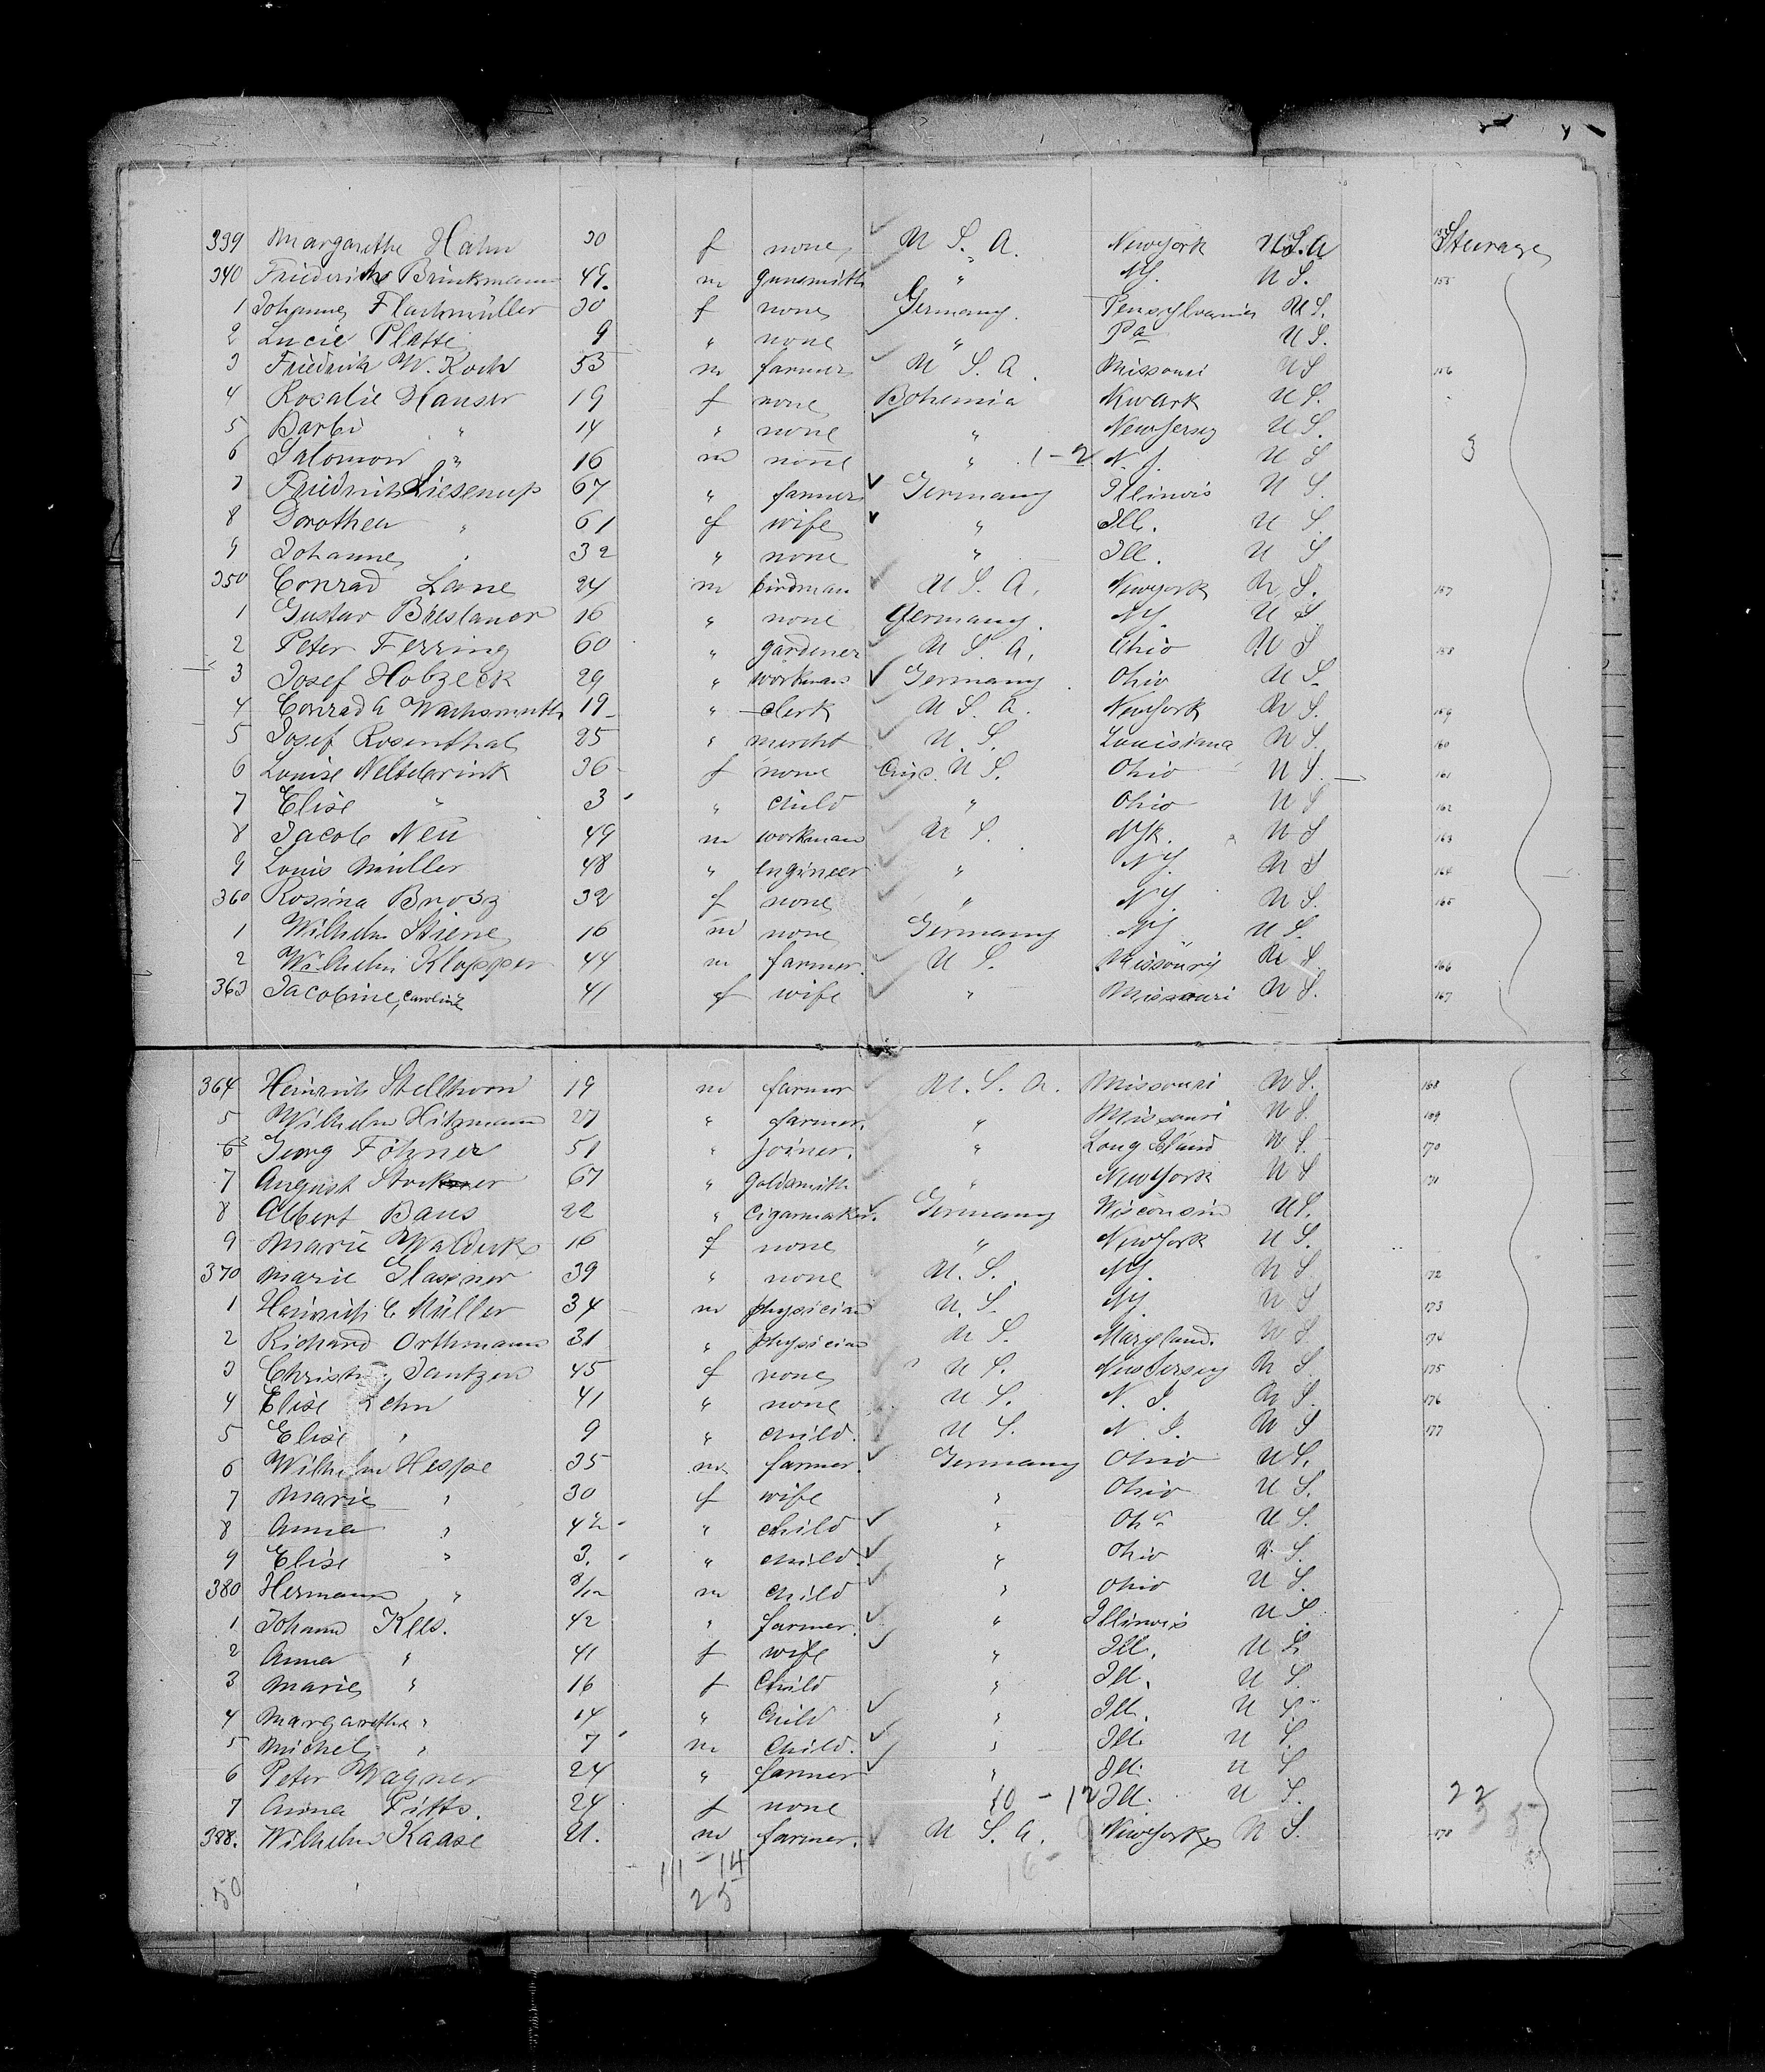 339 Margarethe Hahn 30 f none U. S. A. New York U.S.A Steerage
340 Friederich Brinkmann 49. m gunsmith " NY. U S. 155
1 Johanne Flachmüller 30 f none Germany. Pensylvania U S.
2 Lucie Platte 9 " none " Pa U S.
3 Friedrich W. Koch 53 m farmer U S. A. Missouri U S 156
4 Rosalie Hauser 19 f none Bohemia Nwark U S.
5 Barbi " 14 " none " New Jersey U S.
6 Salomon " 16 m none " 1-2 N. J. U S 3
7 Friedrich 67 " farmer Germany Illinois U S.
8 Dorothea " 61 f wife " Ill. U S.
9 Johanne " 32 " none " Ill. U S
350 Conrad Lane 24 m birdman U S. A. New york U S. 157
1 Gustav Breslauer 16 " none Germany. NY. U S.
2 Peter Ferring 60 " gardener U S. A. Ohio U S 158
3 Josef Hobzeck 29 " workman Germany Ohio U S.
4 Conrad A Wachsmuth 19 " clerk U S. A. New York U S. 159
5 Josef Rosenthal 25 " mercht U. S. Louisiana U S. 160
6 Louise 36 f none U S. Ohio U S. 161
7 Elise " 3 " child " Ohio U S 162
8 Jacob Neu 49 m workman U S. NYk. U S 163
9 Louis Müller 48 " Engineer " NY. U S 164
360 Rosina Brosz 32 f none " NY. U S. 165
1 Wilhelm Stiene 16 m none Germany NY U S.
2 Wilhelm Klopper 44 m farmer. U S. Missoury U S 166
363 Jacobine, Caroline 41 f wife " Missouri U S. 167
364 Heinrich Stellhorn 19 m farmer U. S. A. Missouri U S. 168
5 Wilhelm Hitzmann 27 " farmer. " Missouri U S. 169
6 Georg Föhner 51 " joiner. " Long Island U S. 170
7 August 67 " Goldsmith " New York U S 171
8 Albert Baus 22 " Cigarmaker. Germany Wisconsin U S.
9 Marie 16 f none " New York U S.
370 Marie Glassner 39 " none U. S. NY. U S. 72
1 Heinrich C Müller 34 m physician U. S. NY. U S 173
2 Richard Orthmann 31 " physician U S. Maryland. U S 174
3 Christ. Jantzen 45 f none U S. New Jersey U S. 175
4 Elise Lehn 41 " none U S. N. J. U S. 176
5 Elise " 9 " child. U S. N. J. U S 177
6 Wilhelm Heppe 35 m farmer. Germany Ohio U S.
7 Marie " 30 f wife " Ohio U S.
8 Anna " " child " Ohio U S.
9 Elise " 3. " child. " Ohio U. S.
380 Hermann " m child " Ohio U S.
1 Johann Klls. 42 " farmer. " Illinois U S.
2 Anna " 41 f wife " Ill. U S.
3 Marie " 16 f Child " Ill. U S.
4 Margarethe " 14 " Child " Ill. U S.
5 Michel " 7 m Child. " Ill. U S.
6 Peter Wagner 24 " farmer " Ill. U S
7 Anna Pitts. 24 f none 10 - 12 Ill. U S. 22
388. Wilhelm Kaase 21. m farmer. U S. A. New York U S. 178
11 - 14
50 25